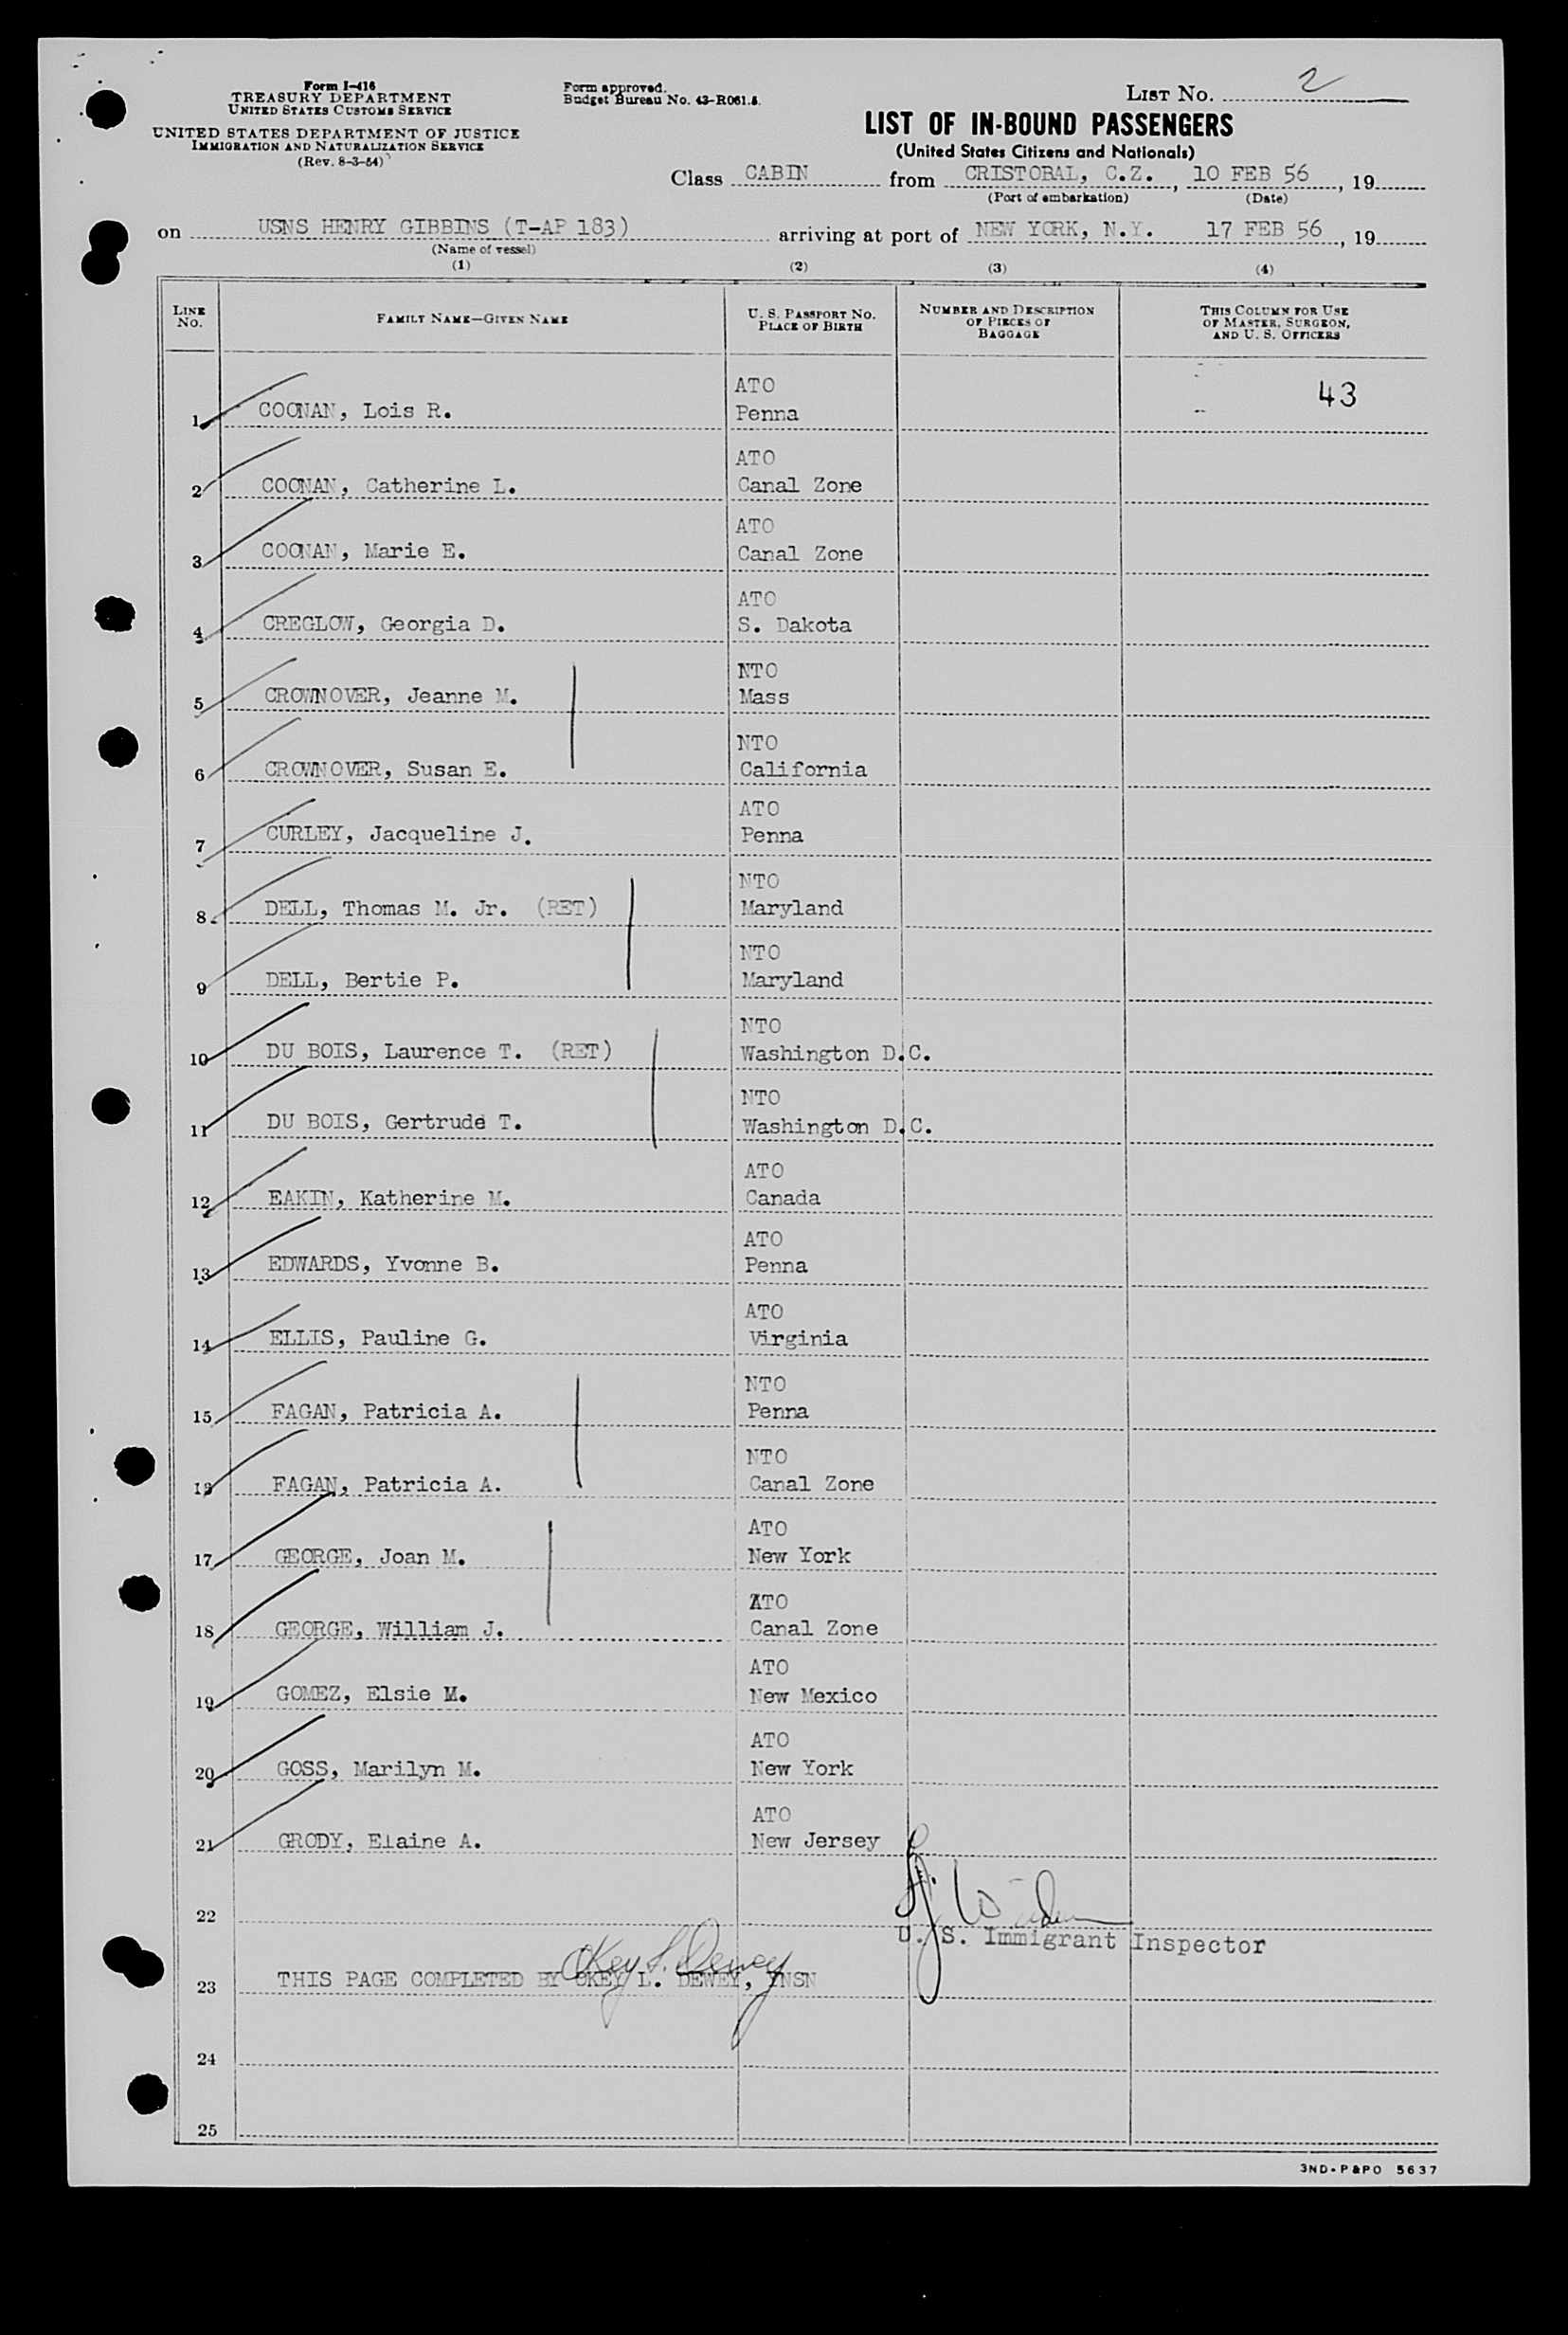 Form I-416
TREASURY DEPARTMENT
UNITED STATES CUSTOMS SERVICE
UNITED STATES DEPARTMENT OF JUSTICE
IMMIGRATION AND NATURALIZATION SERVICE
(Rev. 8-3-54)
Form approved.
Budget Bureau No. 43-R061.5.
LIST No. 2
LIST OF IN-BOUND PASSENGERS
(United States Citizens and Nationals)
Class CABIN from CRISTOBAL, C.Z., 10 FEB 56, 19
(Port of embarkation) (Date)
on USNS HENRY GIBBINS (T-AP 183) arriving at port of NEW YORK, N.Y. 17 FEB 56, 19
(Name of vessel)
(1) (2) (3) (4)
LINE No. FAMILY NAME—GIVEN NAME U. S. PASSPORT NO. PLACE OF BIRTH NUMBER AND DESCRIPTION OF PIECES OF BAGGAGE THIS COLUMN FOR USE OF MASTER, SURGEON, AND U. S. OFFICERS
ATO 43
1 COONAN, Lois R. Penna
ATO
2 COONAN, Catherine L. Canal Zone
ATO
3 COONAN, Marie E. Canal Zone
ATO
4 CREGLOW, Georgia D. S. Dakota
NTO
5 CROWNOVER, Jeanne M. Mass
NTO
6 CROWNOVER, Susan E. California
ATO
7 CURLEY, Jacqueline J. Penna
NTO
8 DELL, Thomas M. Jr. (RET) Maryland
NTO
9 DELL, Bertie P. Maryland
NTO
10 DU BOIS, Laurence T. (RET) Washington D.C.
NTO
11 DU BOIS, Gertrude T. Washington D.C.
ATO
12 EAKIN, Katherine M. Canada
ATO
13 EDWARDS, Yvonne B. Penna
ATO
14 ELLIS, Pauline G. Virginia
NTO
15 FAGAN, Patricia A. Penna
NTO
16 FAGAN, Patricia A. Canal Zone
ATO
17 GEORGE, Joan M. New York
ATO
18 GEORGE, William J. Canal Zone
ATO
19 GOMEZ, Elsie M. New Mexico
ATO
20 GOSS, Marilyn M. New York
ATO
21 GRODY, Elaine A. New Jersey
22
U. S. Immigrant Inspector
Okey L. Dewey
23 THIS PAGE COMPLETED BY OKEY L. DEWEY, YNSN
24
25
3ND-P&PO 5637